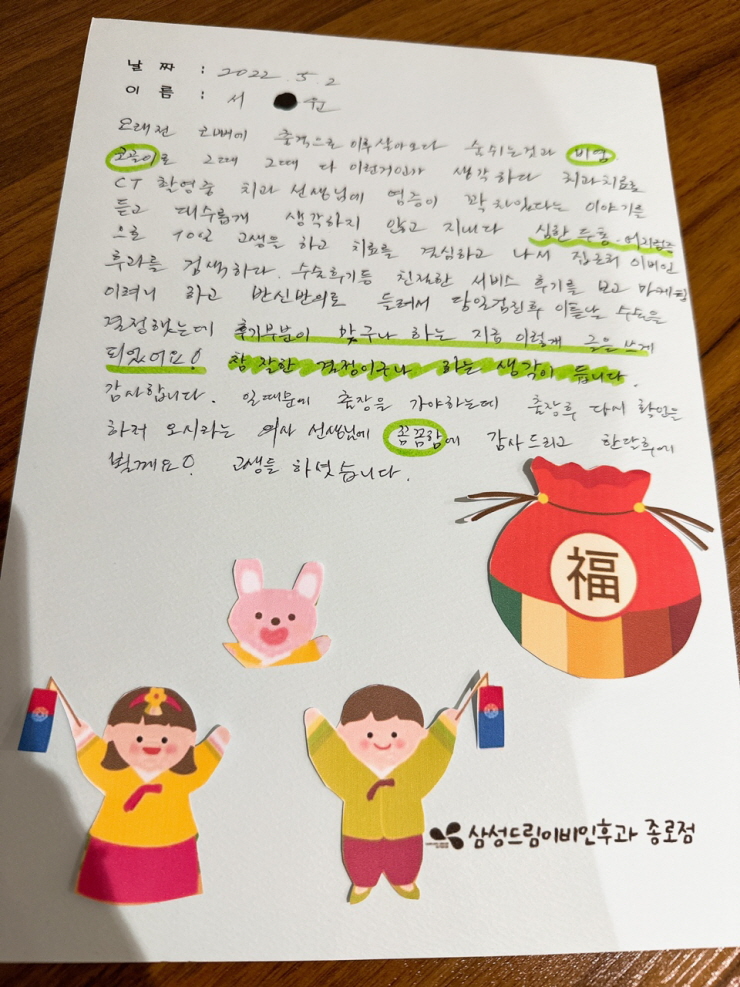 날 짜 : 2022. 5. 2
이 름 : 서 원
오래전 코뼈에 충격으로 이후 살아오다 숨쉬는것과 비염
코골이로 그때 그때 다 이런거인가 생각하다 치과치료로
CT 촬영중 치과 선생님에 염증이 꽉 차있다는 이야기을
듣고 대수롭게 생각하지 않고 지내다 심한 두통·어지럼증
으로 고생을 하고 치료를 결심하고 나서 집근처 이비인
후과를 검색하다. 수술후기등 친절한 서비스 후기를 보고 마케팅
이려니 하고 반신반의로 들려서 당일검진후 이틀날 수술을
결정했는데 후기부분이 맞구나 하는 지금 이렇게 글을 쓰게
되었어요! 참 잘한 결정이구나 하는 생각이 듭니다.
감사합니다. 일때문에 출장을 가야하는데 출장후 다시 확인을
하러 오시라는 여사 선생님에 꼼꼼함에 감사드리고 한달후에
뵐께요! 고생들 하셧습니다.
福
삼성드림이비인후과 종로점